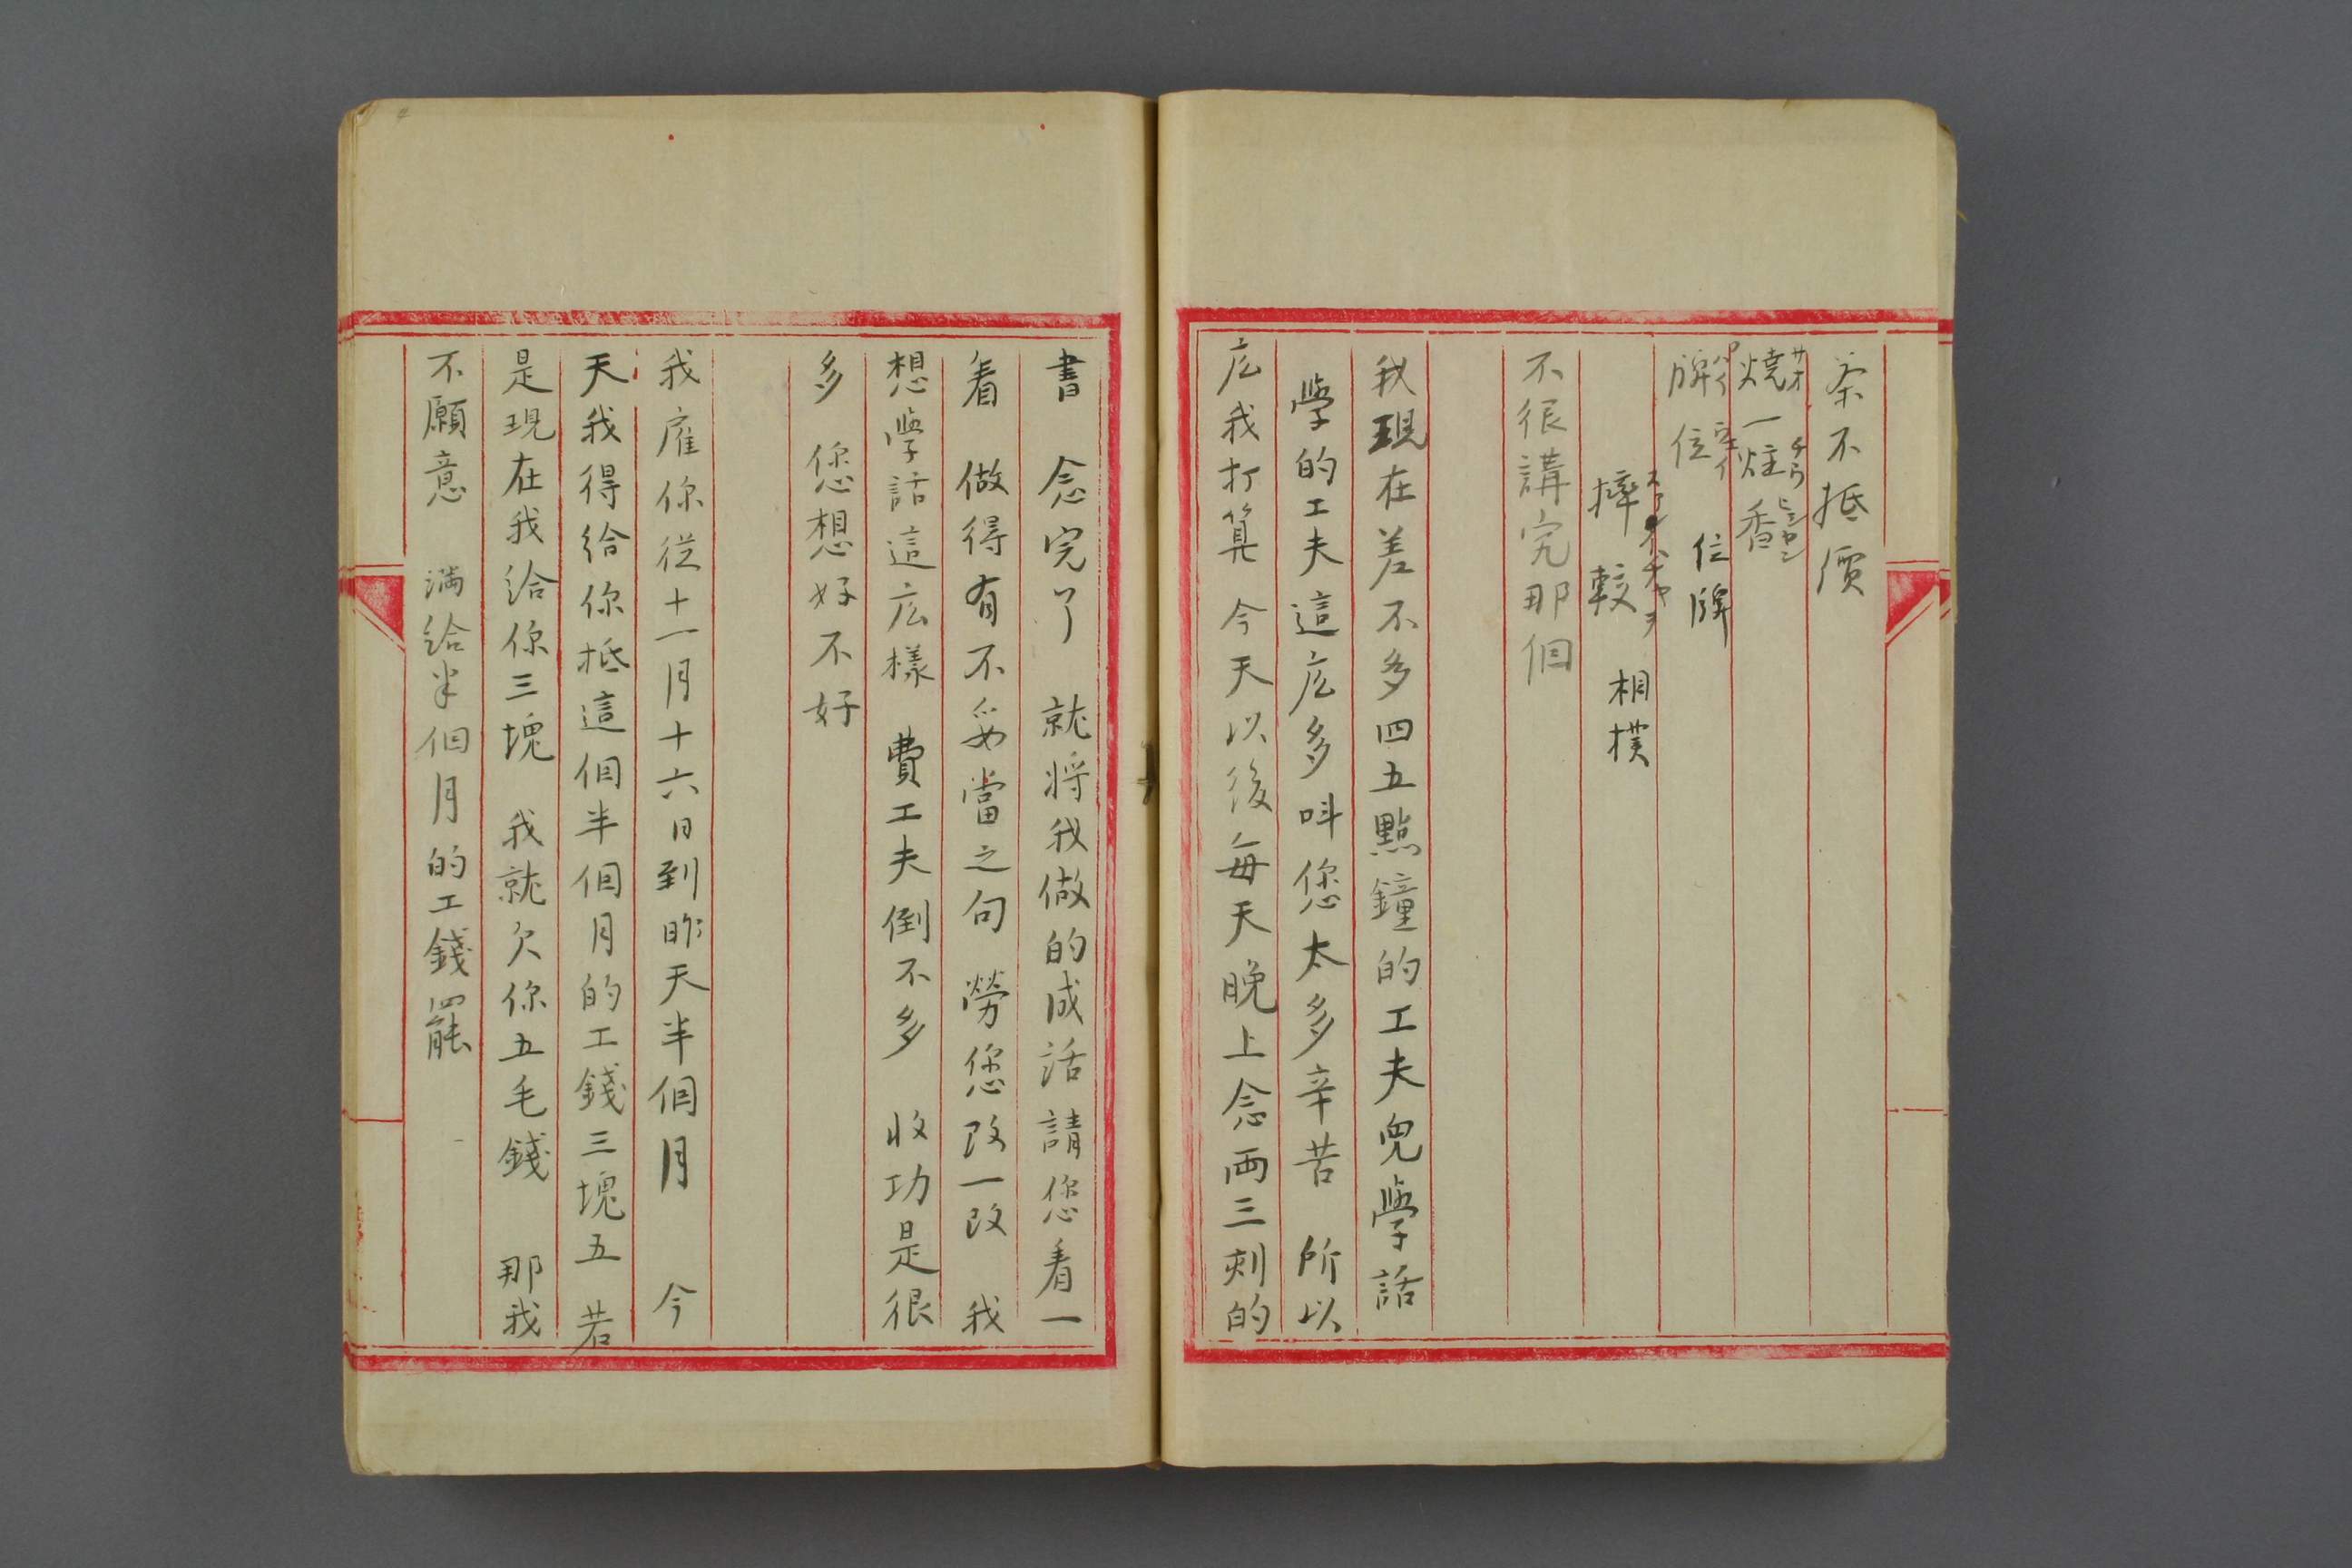 茶不抵價
燒一炷香
サオ チウ ヒシヤン
牌位 位牌
パイ ウエイ
摔較 相撲
不很講究那個
我現在差不多四五點鐘的工夫兒學話
學的工夫這広多呌您太多辛苦 所以
広我打算 今天以後每天晚上念両三刻的
書 念完了 就将我做的成話請您看一
看 做得有不妥當之句 勞您改一改 我
想學話這広樣 費工夫倒不多 收功是很
多 您想好不好
我雇你從十一月十六日到昨天半個月 今
天我得給你抵這個半個月的工錢三塊五 若
是現在我給你三塊 我就欠你五毛錢 那我
不願意 満給半個月的工錢罷